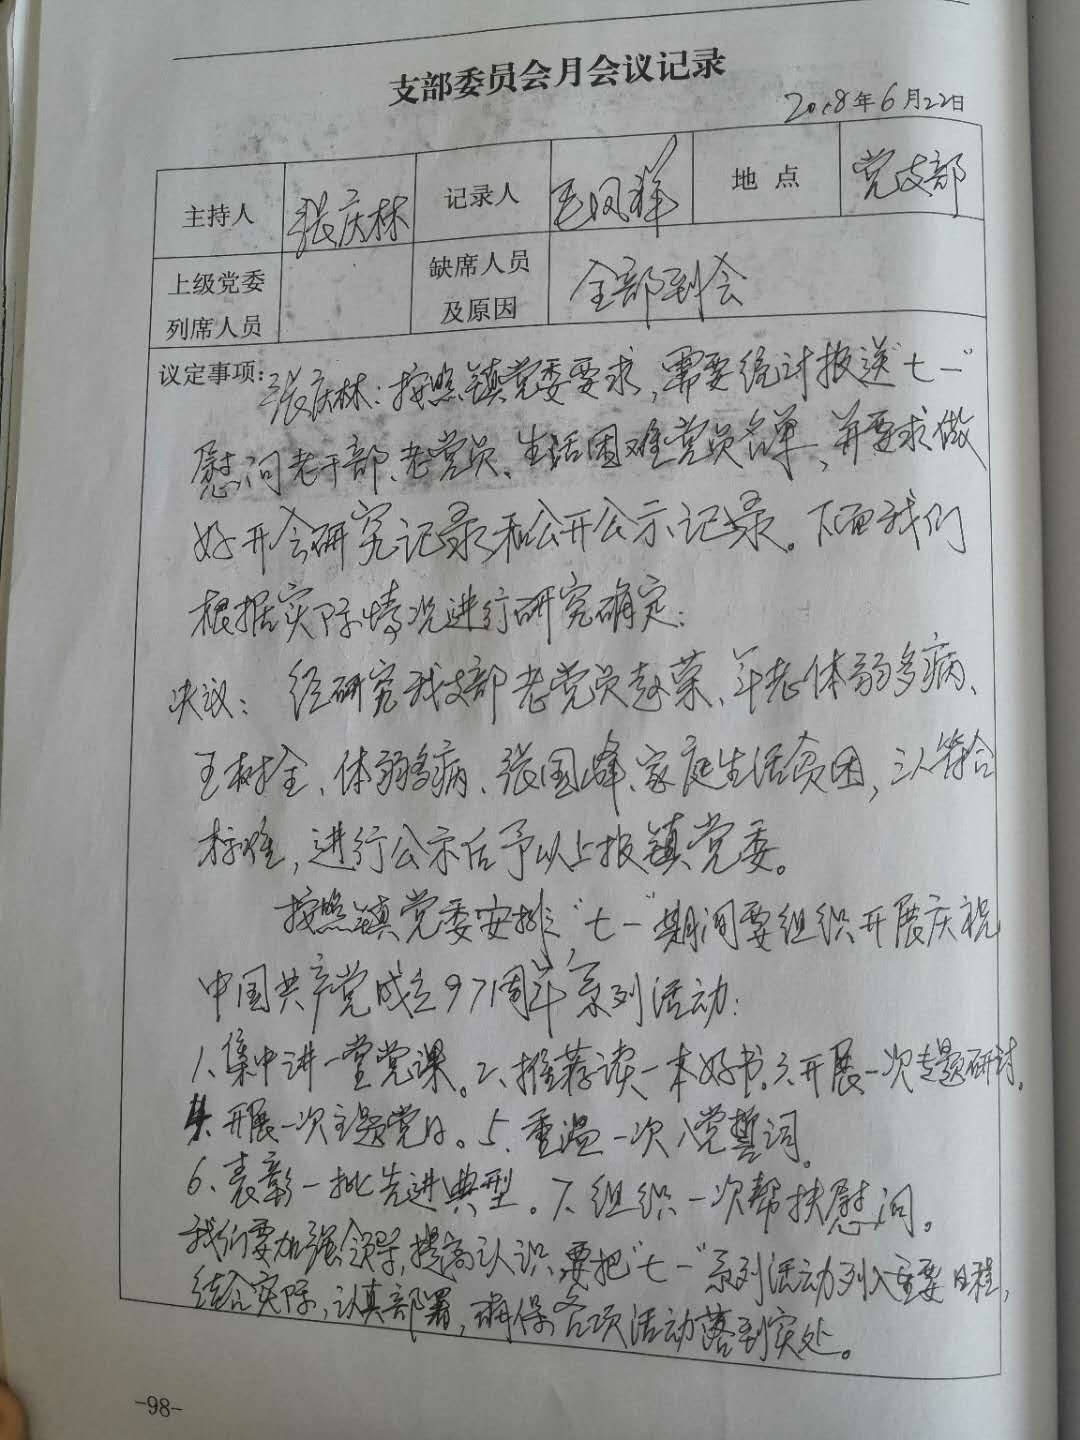 支部委员会月会议记录
2018年6月22日
主持人 张庆林 记录人 王凤祥 地点 党支部
上级党委列席人员 缺席人员及原因 全部到会
议定事项:张庆林:按照镇党委要求,需要统计报送"七一"
慰问老干部、老党员、生活困难党员名单,并要求做
好开会研究记录和公开公示记录。下面我们
根据实际情况进行研究确定:
决议: 经研究我支部老党员赵荣、年老体弱多病、
王树全、体弱多病、张国峰、家庭生活贫困,三人符合
标准,进行公示后予以上报镇党委。
按照镇党委安排,"七一"期间要组织开展庆祝
中国共产党成立97周年系列活动:
1、集中讲一堂党课。2、推荐读一本好书。3、开展一次专题研讨。
4、开展一次主题党日。5、重温一次入党誓词。
6、表彰一批先进典型。7、组织一次帮扶慰问。
我们要加强领导,提高认识,要把"七一"系列活动列入重要日程,
结合实际,认真部署,确保各项活动落到实处。
-98-